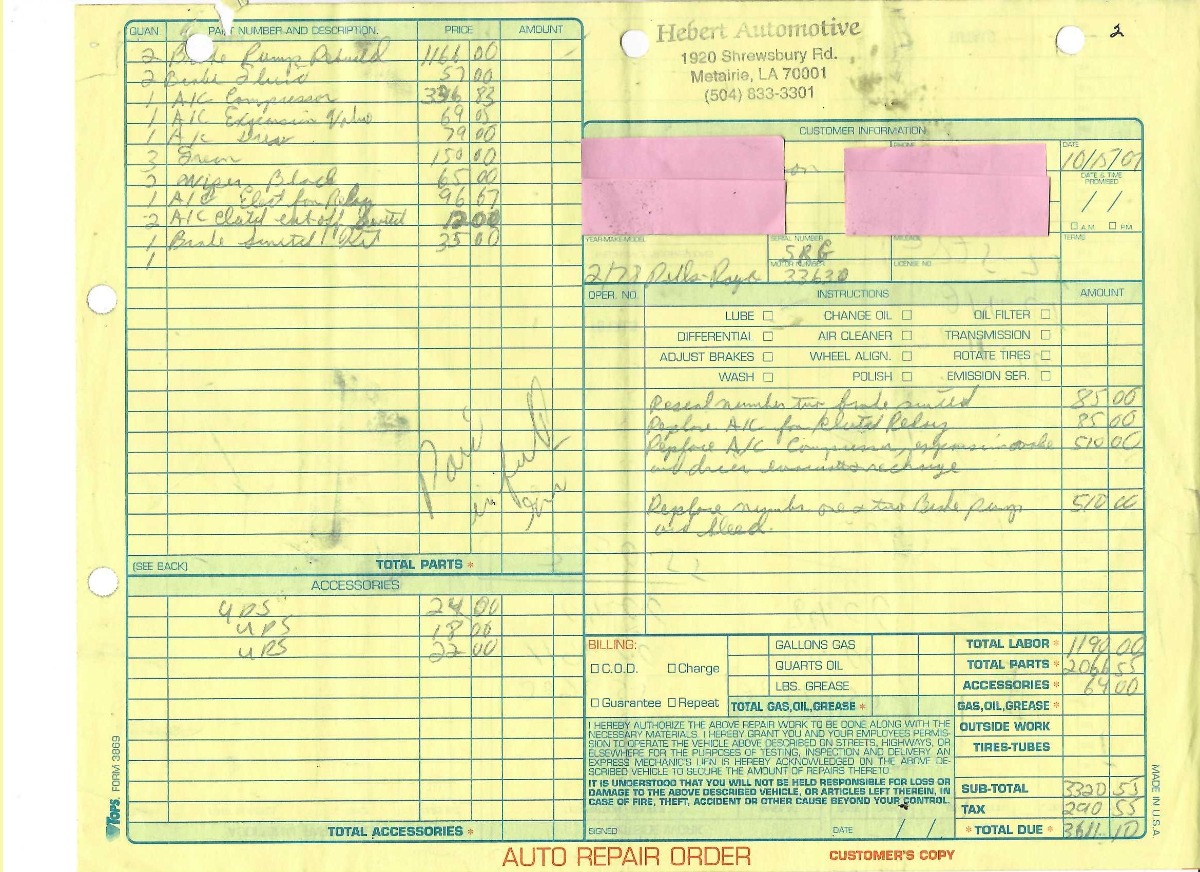 Hebert Automotive
1920 Shrewsbury Rd.
Metairie, LA 70001
(504) 833-3301
2
QUAN. PART NUMBER AND DESCRIPTION PRICE AMOUNT
2 Brake Pump Rebuild 1166 00
2 Brake Fluid 57 00
1 A/C Compressor 396 83
1 A/C Expansion Valve 69 05
1 A/C Drier 79 00
3 Freon 150 00
2 Wiper Blade 65 00
1 A/C Relay 96 67
2 A/C cut off 12 00
1 Brake 35 00
1
Paid
in full
(SEE BACK) TOTAL PARTS *
ACCESSORIES
UPS 24 00
UPS 18 00
UPS 22 00
TOTAL ACCESSORIES *
TOPS. FORM 3869
CUSTOMER INFORMATION
DATE
10/15/07
DATE & TIME PROMISED
/ /
A.M. P.M.
YEAR-MAKE-MODEL SERIAL NUMBER MILEAGE TERMS
SRG
MOTOR NUMBER LICENSE NO.
33630
OPER. NO. INSTRUCTIONS AMOUNT
LUBE CHANGE OIL OIL FILTER
DIFFERENTIAL AIR CLEANER TRANSMISSION
ADJUST BRAKES WHEEL ALIGN. ROTATE TIRES
WASH POLISH EMISSION SER.
Reseal number two brake 85 00
Replace A/C Relay 85 00
Replace A/C Compressor, expansion valve 510 00
and drier evacuate recharge
Replace number one & two Brake Pump 510 00
and bleed.
BILLING:
C.O.D. Charge
Guarantee Repeat
GALLONS GAS
QUARTS OIL
LBS. GREASE
TOTAL GAS, OIL, GREASE *
TOTAL LABOR * 1190 00
TOTAL PARTS * 2066 55
ACCESSORIES * 64 00
GAS, OIL, GREASE *
OUTSIDE WORK
TIRES-TUBES
SUB-TOTAL 3320 55
TAX 290 55
* TOTAL DUE * 3611 10
I HEREBY AUTHORIZE THE ABOVE REPAIR WORK TO BE DONE ALONG WITH THE
NECESSARY MATERIALS. I HEREBY GRANT YOU AND YOUR EMPLOYEES PERMIS-
SION TO OPERATE THE VEHICLE ABOVE DESCRIBED ON STREETS, HIGHWAYS, OR
ELSEWHERE FOR THE PURPOSES OF TESTING, INSPECTION AND DELIVERY. AN
EXPRESS MECHANIC'S LIEN IS HEREBY ACKNOWLEDGED ON THE ABOVE DE-
SCRIBED VEHICLE TO SECURE THE AMOUNT OF REPAIRS THERETO.
IT IS UNDERSTOOD THAT YOU WILL NOT BE HELD RESPONSIBLE FOR LOSS OR
DAMAGE TO THE ABOVE DESCRIBED VEHICLE, OR ARTICLES LEFT THEREIN, IN
CASE OF FIRE, THEFT, ACCIDENT OR OTHER CAUSE BEYOND YOUR CONTROL.
SIGNED DATE / /
MADE IN U.S.A.
AUTO REPAIR ORDER
CUSTOMER'S COPY